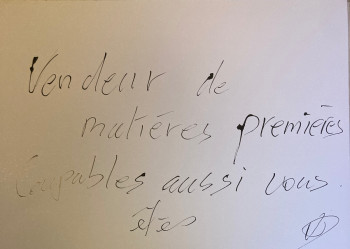 Vendeur de
matières premières
Coupables aussi vous
êtes